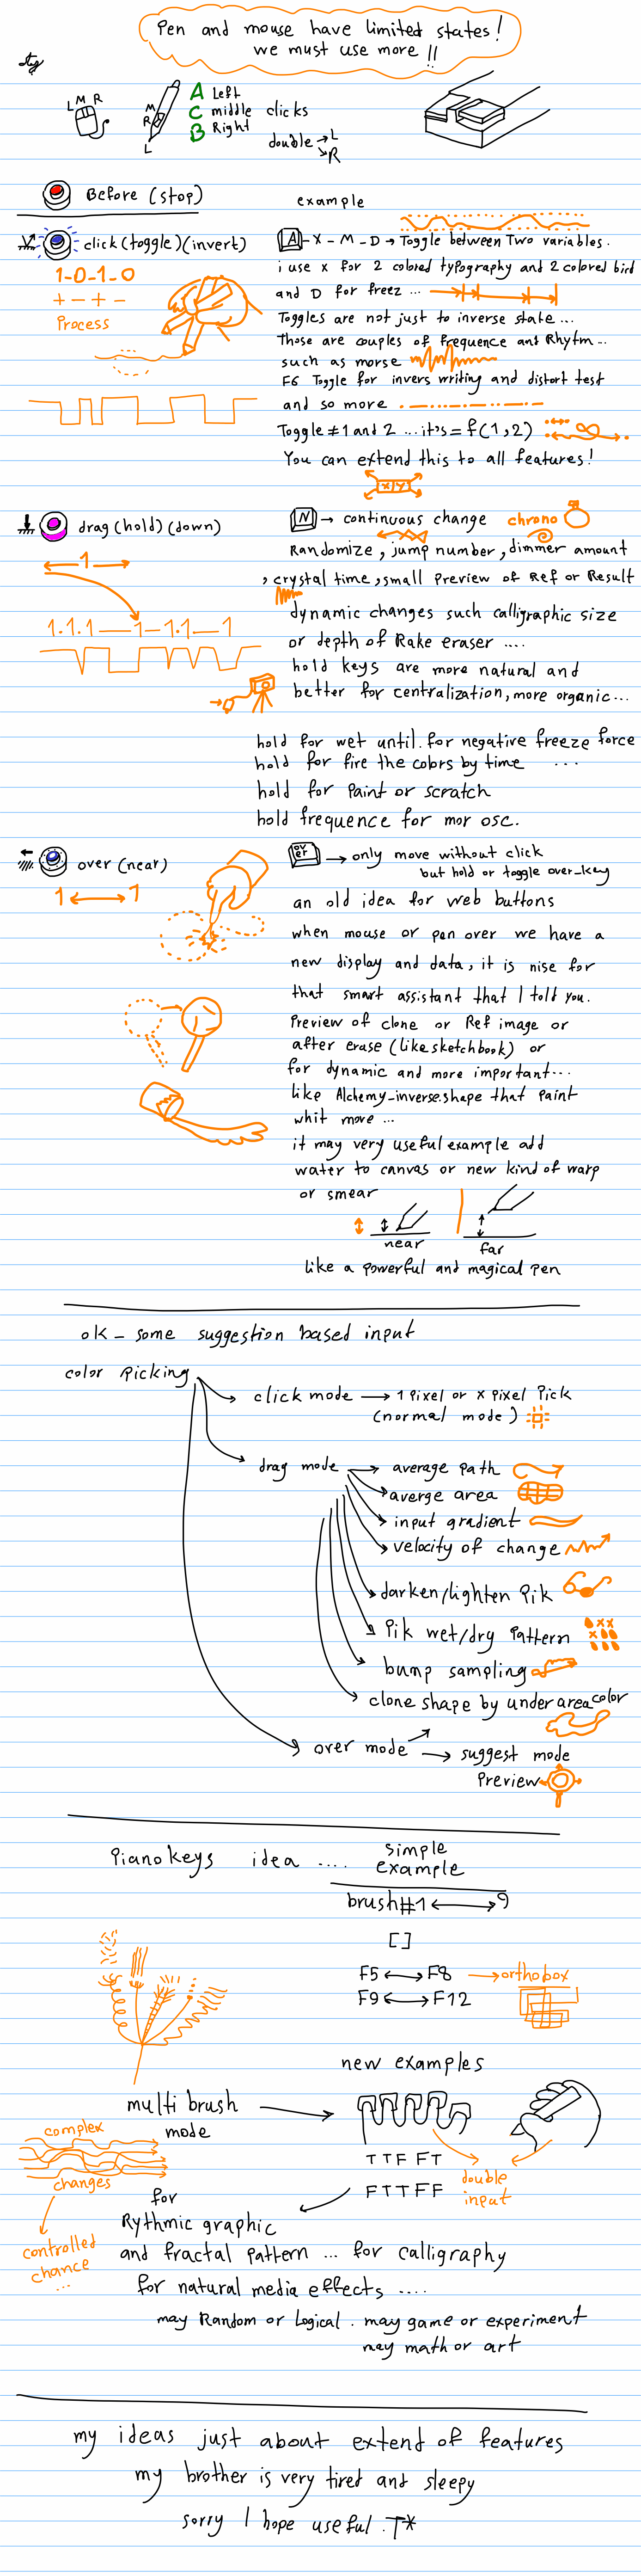 Pen and mouse have limited states!
we must use more !!
L M R
M
R
L
A Left
C middle clicks
B Right
double → L
R
Before (stop)
example
click (toggle) (invert)
A - X - M - D → Toggle between Two variables.
1-0-1-0
+ - + -
Process
i use x for 2 colored typography and 2 colored bird
and D for freez ...
Toggles are not just to inverse state...
Those are couples of frequence and Rhytm...
such as morse
F6 Toggle for invers writing and distort test
and so more
Toggle #1 and 2 ... it's = f(1,2)
You can extend this to all features!
X/Y
drag (hold) (down)
N → continuous change chrono
1
Randomize, jump number, dimmer amount
, crystal time, small preview of Ref or Result
dynamic changes such calligraphic size
1.1.1 — 1-1.1 — 1
or depth of Rake eraser ....
hold keys are more natural and
better for centralization, more organic...
hold for wet until. for negative freeze force
hold for fire the colors by time ...
hold for paint or scratch
hold frequence for mor osc.
over (near)
over → only move without click
but hold or toggle over-key
1 ↔ 1
an old idea for web buttons
when mouse or pen over we have a
new display and data, it is nise for
that smart assistant that I told you.
Preview of clone or Ref image or
after erase (like sketchbook) or
for dynamic and more important...
like Alchemy-inverse.shape that paint
whit move ...
it may very useful example add
water to canvas or new kind of warp
or smear
near
far
like a powerful and magical pen
ok - some suggestion based input
color picking
click mode → 1 pixel or x pixel pick
(normal mode)
drag mode → average path
averge area
input gradient
velocity of change
darken/lighten Pik
Pik wet/dry pattern
bump sampling
clone shape by under area color
over mode → suggest mode
Preview
Piano keys idea ....
simple
example
brush#1 ↔ 9
[ ]
F5 ↔ F8 → orthobox
F9 ↔ F12
new examples
multi brush
mode
complex
changes
T T F F T
F T T F F
double
input
controlled
chance
...
for
Rythmic graphic
and fractal pattern ... for calligraphy
for natural media effects ....
may Random or Logical. may game or experiment
may math or art
my ideas just about extend of features
my brother is very tired and sleepy
sorry I hope useful .T*